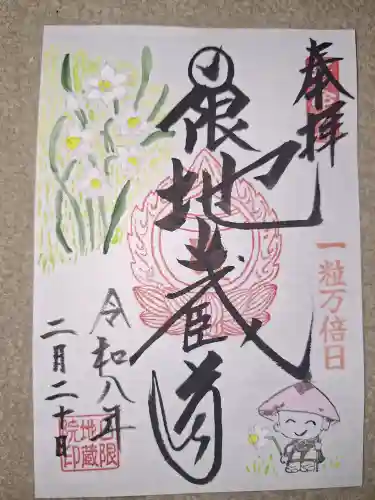 奉拝
一粒万倍日
日限地蔵尊
令和八年
二月二十日
日限
地蔵
院印